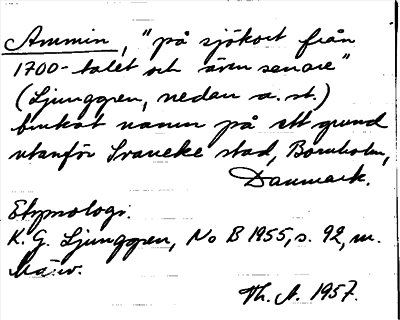 Ammin, "på sjökort från
1700-talet och även senare"
(Ljunggren, nedan a. st.)
brukat namn på ett grund
utanför Svaneke stad, Bornholm,
Danmark.
Etymologi.
K. G. Ljunggren, No B 1955, s. 92, m.
hänv.
Th. A. 1957.